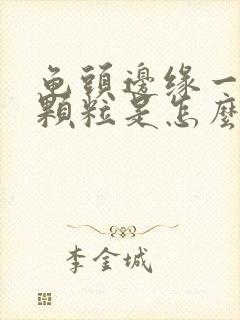 龟頭邊缘一
顆粒是怎麼
李金城